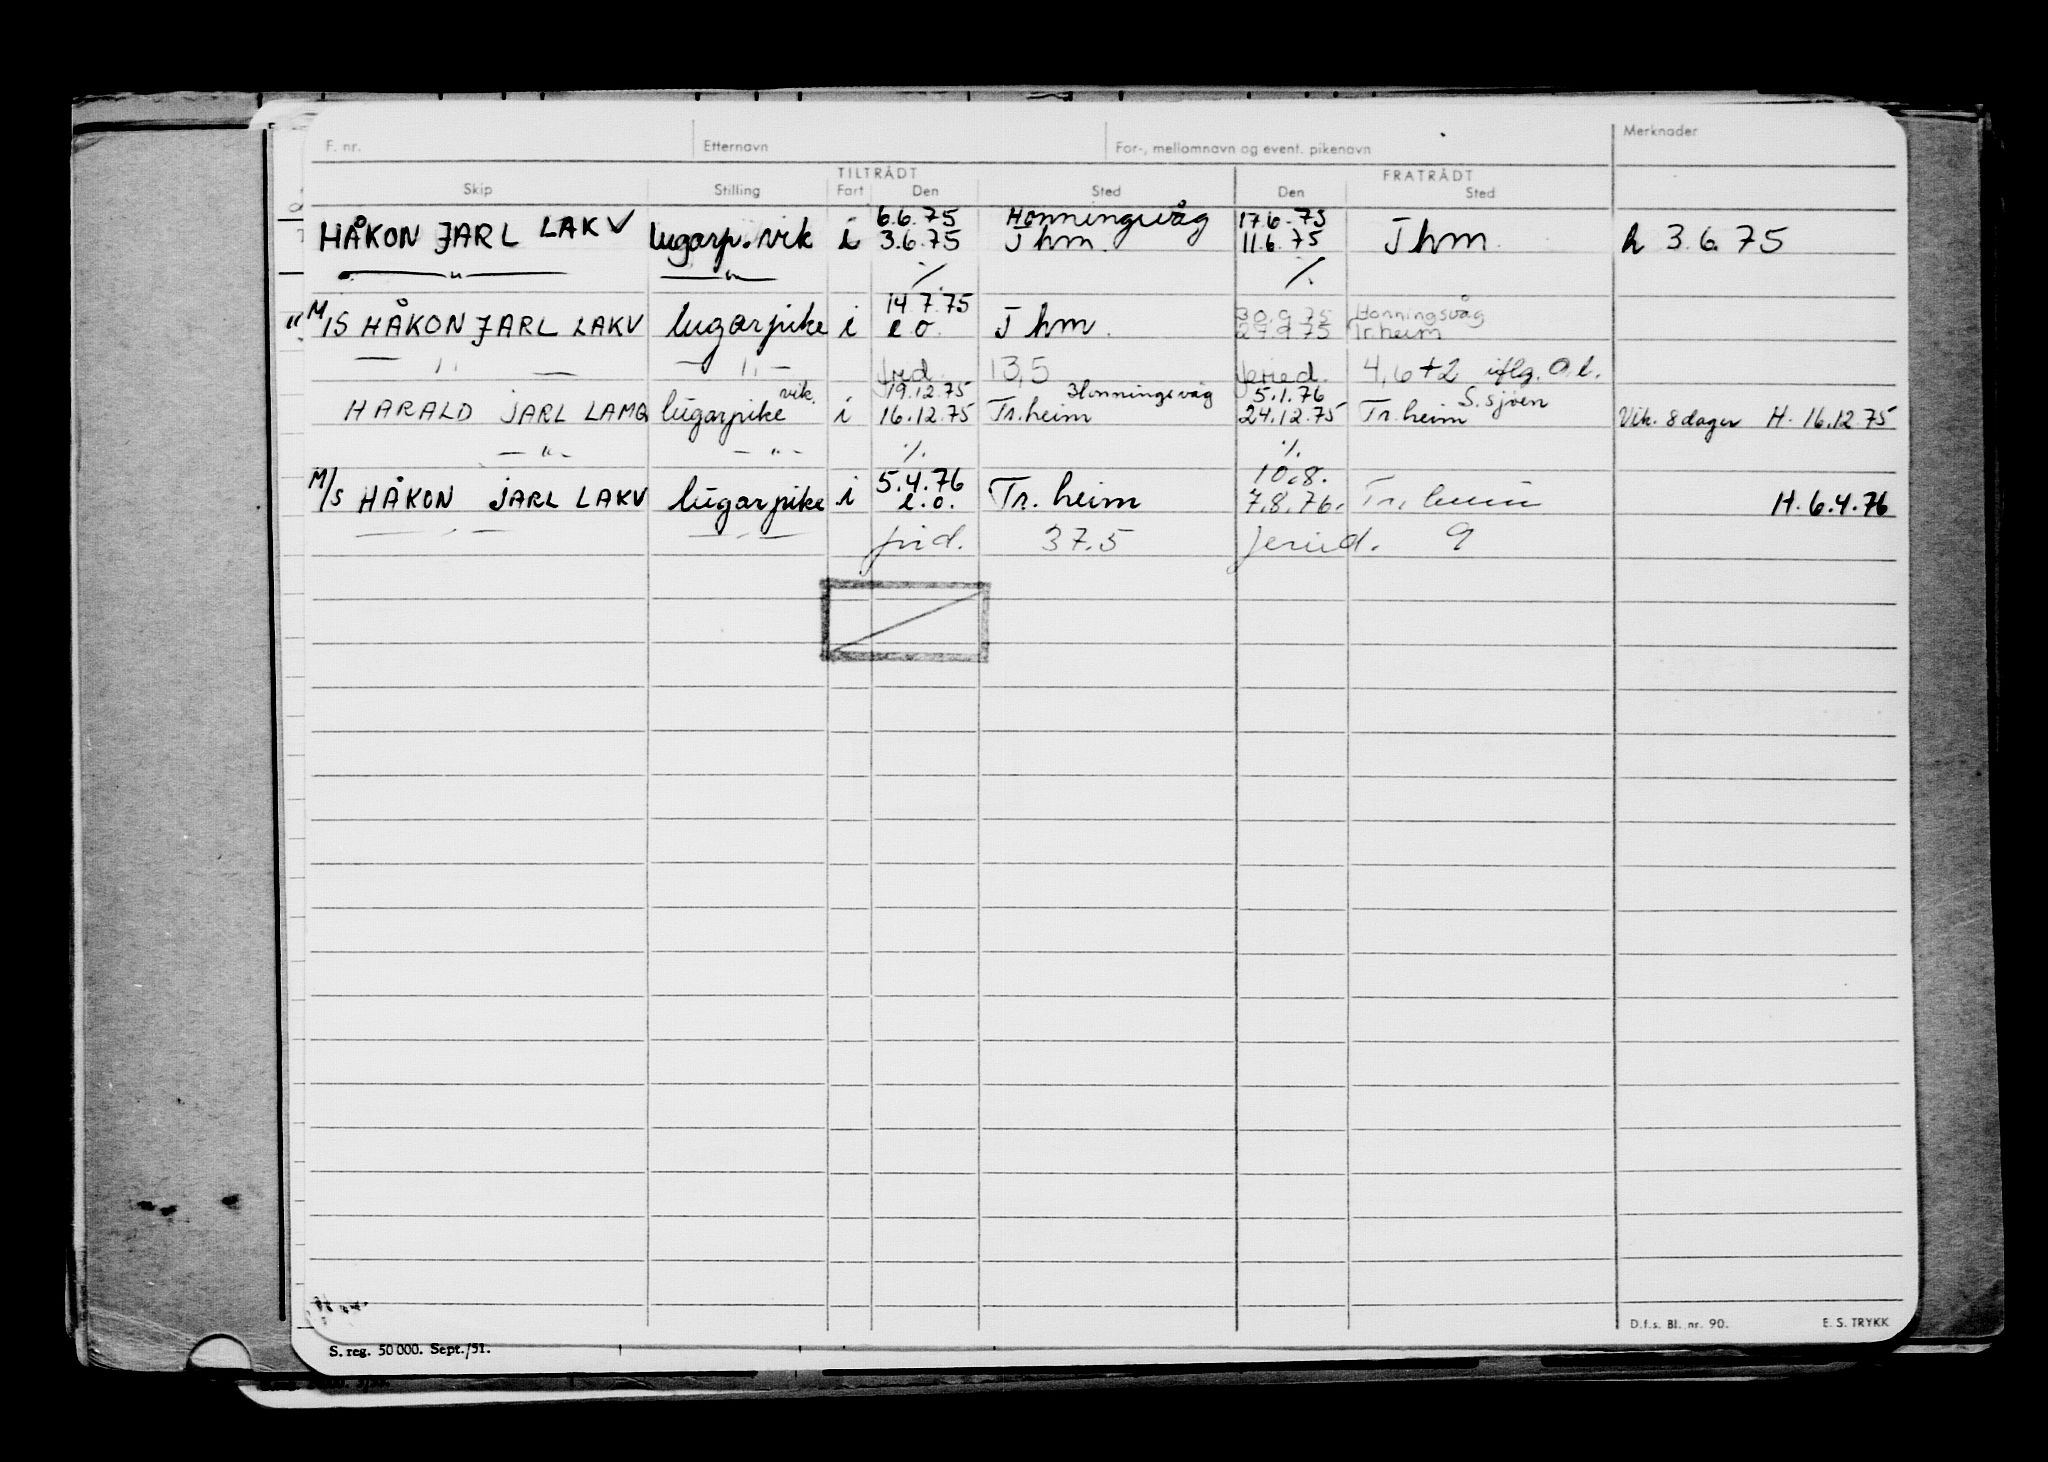 F. nr. Etternavn For-, mellomnavn og event. pikenavn Merknader
TILTRÅDT FRATRÅDT
Skip Stilling Fart Den Sted Den Sted
6.6.75 Honningsvåg 17.6.75
HÅKON JARL LAKV lugarp. vik i 3.6.75 Thm. 11.6.75 Thm. h 3.6.75
— " — — " — % %
14.7.75 30.9.75 Honningsvåg
" M/S HÅKON JARL LAKV lugarpike i e.o. Thm. 27.9.75 Tr.heim
— " — — " — frid. 13,5 feried. 4,6+2 iflg. O.l.
vik. 19.12.75 Honningsvåg 5.1.76 S.sjøen
HARALD JARL LAMQ lugarpike i 16.12.75 Tr.heim 24.12.75 Tr.heim Vik. 8 dager H. 16.12.75
— " — — " — % %
5.4.76 10.8.
M/S HÅKON JARL LAKV lugarpike i e.o. Tr. heim 7.8.76. Tr. heim H. 6.4.76
— " — — " — frid. 37.5 feried. 9
D.f.s. Bl. nr. 90. E. S. TRYKK
S. reg. 50 000. Sept./51.